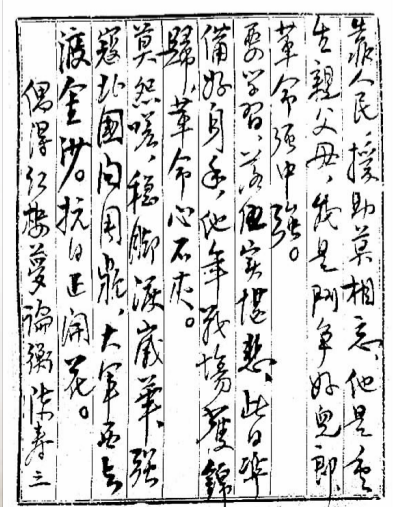 靠人民，援助莫相忘，他是重
生親父母，我是鬥争好兒郎，
革命强中强。
要学習，落伍实堪悲，此日準
備好身手，他年戰場獲錦
歸，革命心不灰。
莫怨嗟，穩脚渡歲華，强
寇 國内，大軍西去
渡金沙。抗日正開花。
偶得红楼夢論衡 寿三